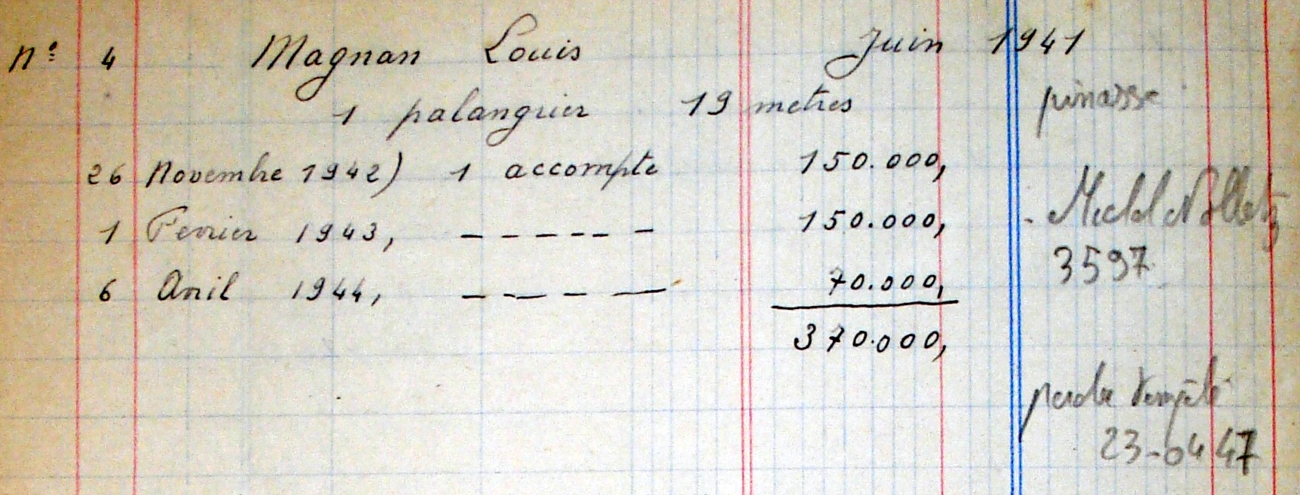 N° 4 Magnan Louis Juin 1941
1 palangrier 19 metres pinasse
26 Novembre 1942) 1 accompte 150.000,
1 Fevrier 1943, - - - - - - 150.000,
6 Avril 1944, - - - - 70.000,
370.000,
3597
perdu tempête
23-04 47